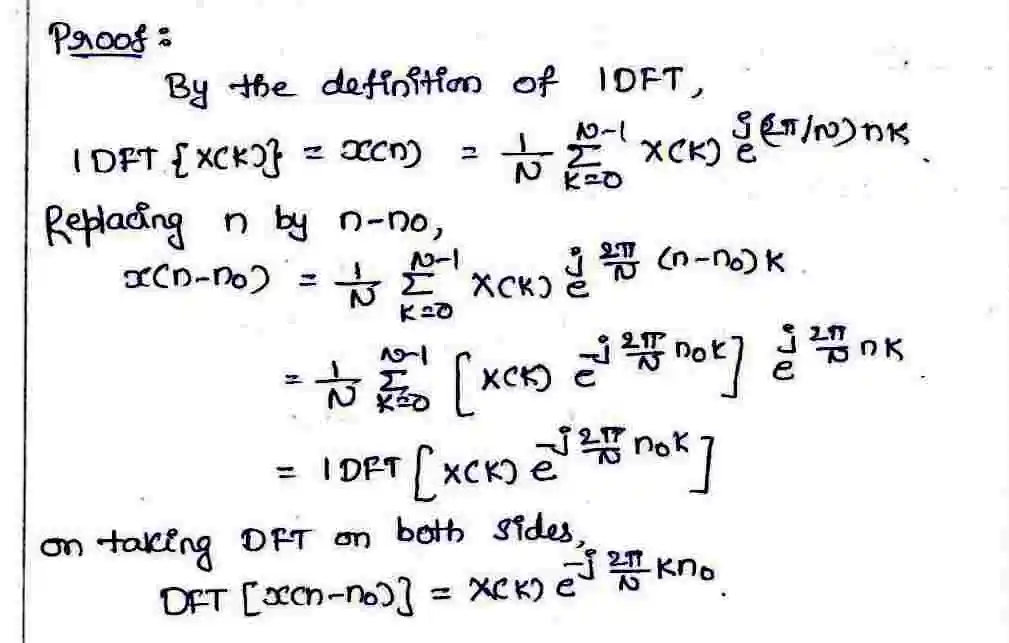 Proof:
By the definition of IDFT,
IDFT {X(K)} = x(n) = 1/N Σ_{K=0}^{N-1} X(K) e^{j(2π/N)nK}.
Replacing n by n-n₀,
x(n-n₀) = 1/N Σ_{K=0}^{N-1} X(K) e^{j 2π/N (n-n₀)K}.
= 1/N Σ_{K=0}^{N-1} [X(K) e^{-j 2π/N n₀K}] e^{j 2π/N nK}.
= IDFT [X(K) e^{-j 2π/N n₀K}]
on taking DFT on both sides,
DFT [x(n-n₀)] = X(K) e^{-j 2π/N Kn₀}.